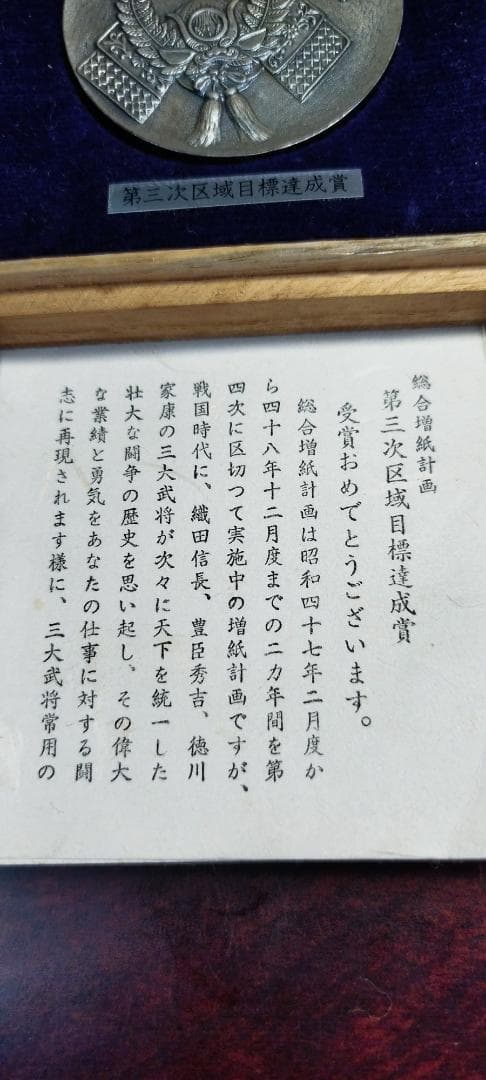 第三次区域目標達成賞
総合増紙計画
第三次区域目標達成賞
受賞おめでとうございます。
総合増紙計画は昭和四十七年二月度か
ら四十八年十二月度までの二カ年間を第
四次に区切つて実施中の増紙計画ですが、
戦国時代に、織田信長、豊臣秀吉、徳川
家康の三大武将が次々に天下を統一した
壮大な闘争の歴史を思い起し、その偉大
な業績と勇気をあなたの仕事に対する闘
志に再現されます様に、三大武将常用の